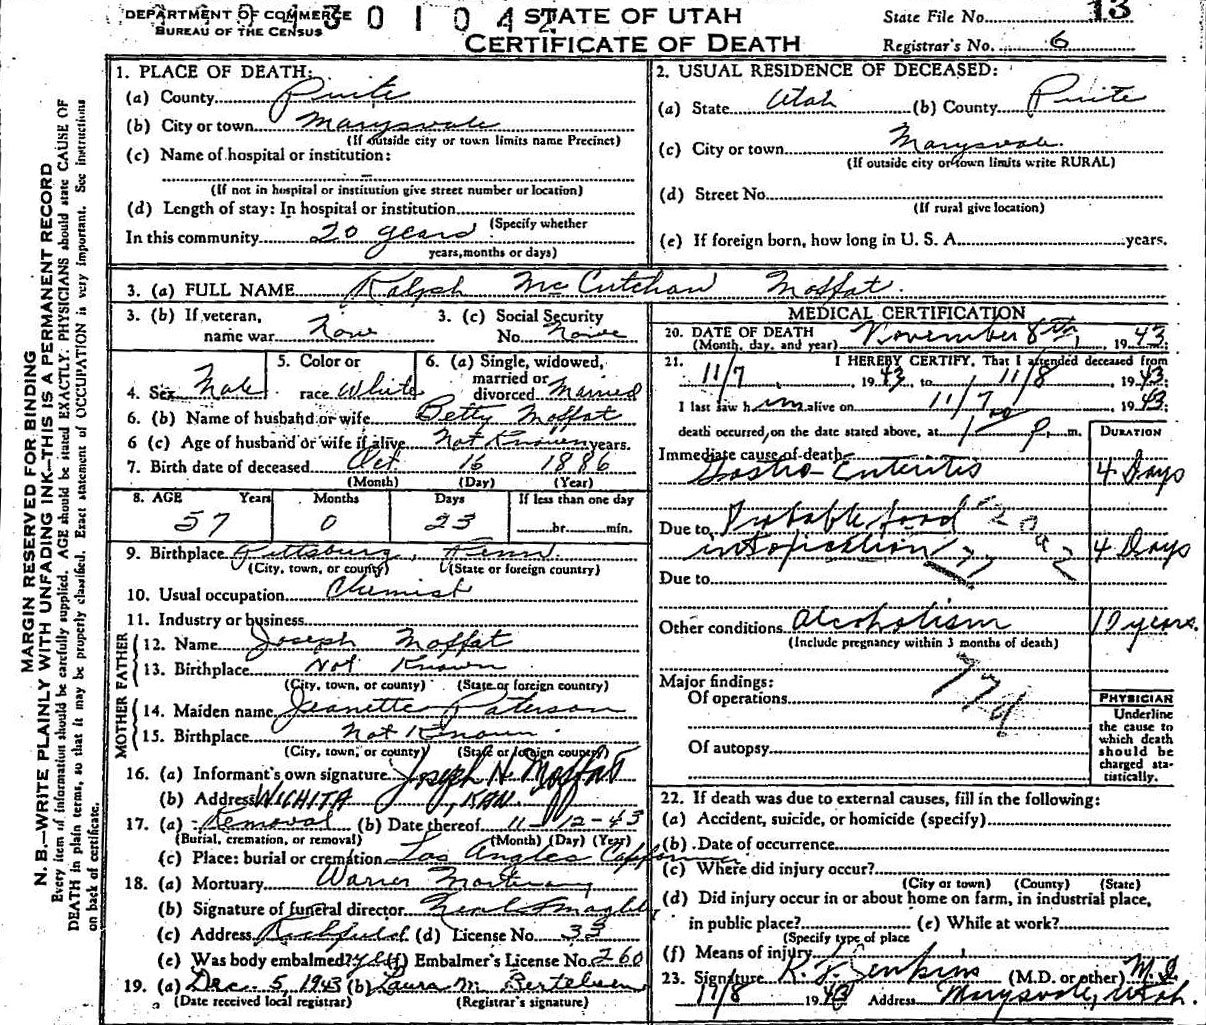 DEPARTMENT OF COMMERCE
BUREAU OF THE CENSUS
3 0 1 0 4 2
STATE OF UTAH
CERTIFICATE OF DEATH
State File No. 13
Registrar's No. 6
MARGIN RESERVED FOR BINDING
N. B.—WRITE PLAINLY WITH UNFADING INK—THIS IS A PERMANENT RECORD
Every item of information should be carefully supplied. AGE should be stated EXACTLY. PHYSICIANS should state CAUSE OF
DEATH in plain terms, so that it may be properly classified. Exact statement of OCCUPATION is very important. See instructions
on back of certificate.
1. PLACE OF DEATH:
(a) County Piute
(b) City or town Marysvale
(If outside city or town limits name Precinct)
(c) Name of hospital or institution:
–
(If not in hospital or institution give street number or location)
(d) Length of stay: In hospital or institution
(Specify whether
In this community 20 years
years, months or days)
2. USUAL RESIDENCE OF DECEASED:
(a) State Utah (b) County Piute
(c) City or town Marysvale.
(If outside city or town limits write RURAL)
(d) Street No.
(If rural give location)
(e) If foreign born, how long in U. S. A. years.
3. (a) FULL NAME Ralph McCutchan Moffat.
3. (b) If veteran,
name war None
3. (c) Social Security
No. None
4. Sex Male
5. Color or
race White
6. (a) Single, widowed,
married or
divorced Married
6. (b) Name of husband or wife Betty Moffat
6 (c) Age of husband or wife if alive Not Known years.
7. Birth date of deceased Oct. 16 1886
(Month) (Day) (Year)
8. AGE Years Months Days If less than one day
57 0 23 hr. min.
9. Birthplace Pittsburg, Penn
(City, town, or county) (State or foreign country)
10. Usual occupation Chemist
11. Industry or business
FATHER
12. Name Joseph Moffat
13. Birthplace Not Known
(City, town, or county) (State or foreign country)
MOTHER
14. Maiden name Jeanette Paterson
15. Birthplace Not Known
(City, town, or county) (State or foreign country)
16. (a) Informant's own signature Joseph H. Moffat
(b) Address WICHITA, KAN.
17. (a) Removal (b) Date thereof 11-12-43
(Burial, cremation, or removal) (Month) (Day) (Year)
(c) Place: burial or cremation Los Angles California
18. (a) Mortuary Warner Mortuary
(b) Signature of funeral director Neal
(c) Address Richfield (d) License No. 33
(e) Was body embalmed? yes (f) Embalmer's License No. 260
19. (a) Dec 5, 1943 (b) Laura M. Bertelsen
(Date received local registrar) (Registrar's signature)
MEDICAL CERTIFICATION
20. DATE OF DEATH November 8th, 1943;
(Month, day, and year)
21. I HEREBY CERTIFY, That I attended deceased from
11/7, 1943, to 11/8, 1943;
I last saw him alive on 11/7, 1943;
death occurred, on the date stated above, at 1 P. m.
DURATION
Immediate cause of death
Gastro-Enteritis 4 Days
Due to Probable food
intoxication 4 Days
77
Due to
Other conditions Alcoholism 10 years.
(Include pregnancy within 3 months of death)
77d
Major findings:
Of operations
Of autopsy
PHYSICIAN
Underline
the cause to
which death
should be
charged sta-
tistically.
22. If death was due to external causes, fill in the following:
(a) Accident, suicide, or homicide (specify)
(b) Date of occurrence
(c) Where did injury occur?
(City or town) (County) (State)
(d) Did injury occur in or about home on farm, in industrial place,
in public place? (e) While at work?
(Specify type of place
(f) Means of injury
23. Signature K. J. Jenkins (M.D. or other) M.D.
11/8 1943 Address Marysvale, Utah.